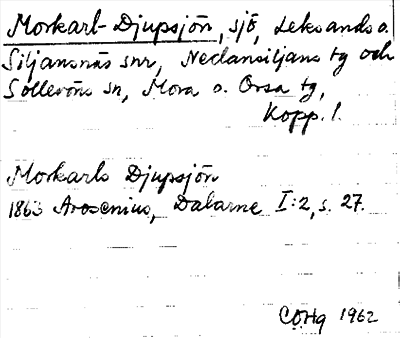 Morkarl-Djupsjön, sjö, Leksands o.
Siljansnäs snr, Nedansiljans tg och
Solleröns sn, Mora o. Orsa tg,
Kopp. l.
Morkarls Djupsjön
1863 Arosenius, Dalarne I:2, s. 27.
COHg 1962